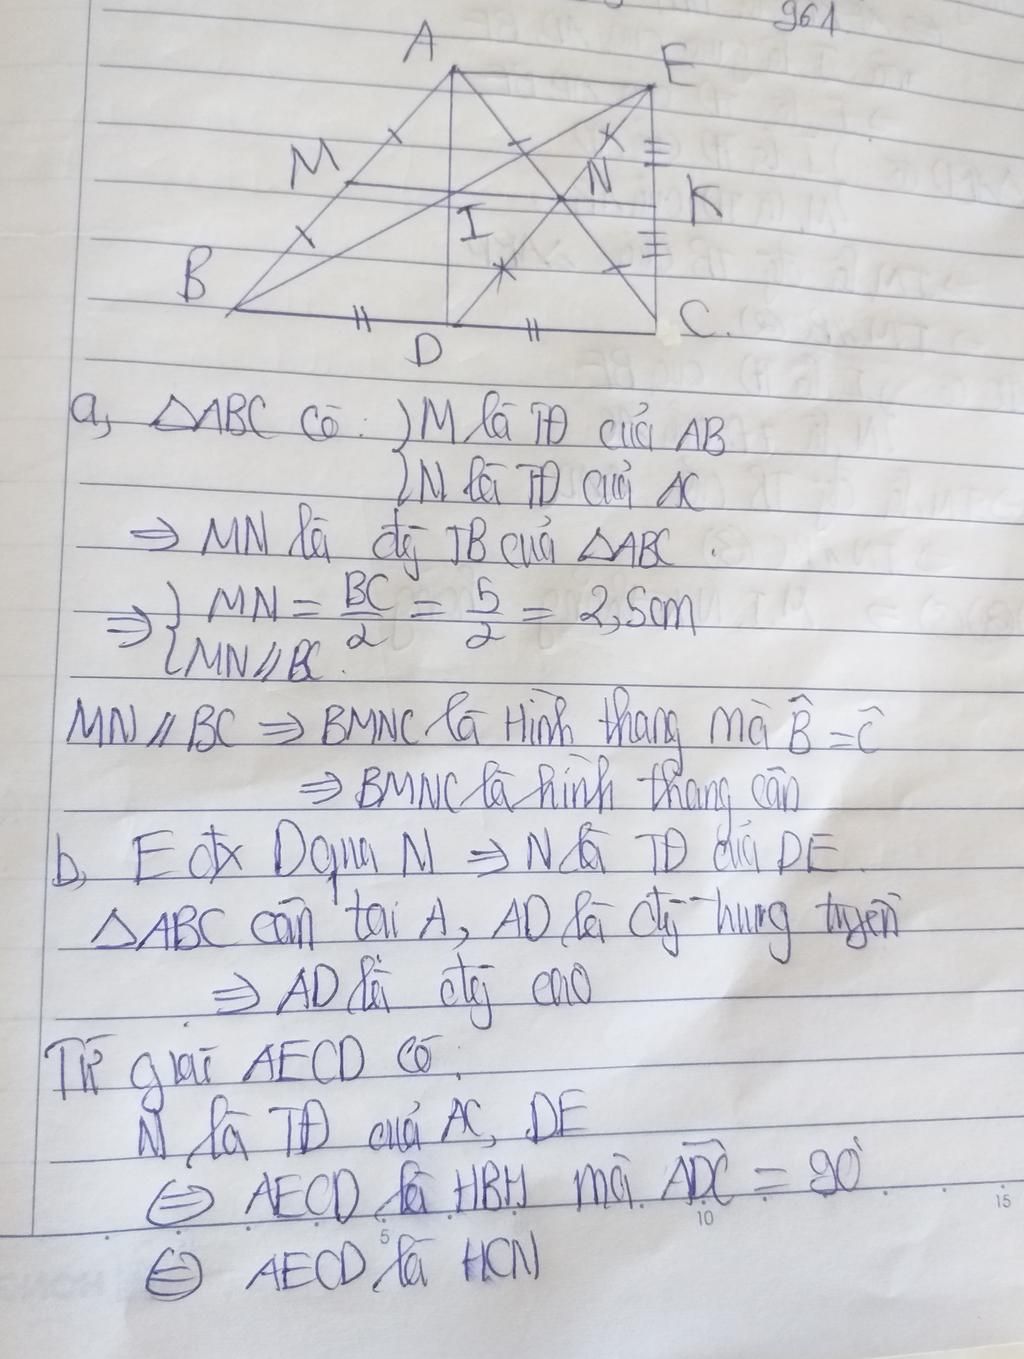 961
A
E
M
N
K
I
B
D
C.
a, △ABC có: M là TĐ của AB
N là TĐ của AC
⇒ MN là đg TB của △ABC.
⇒ { MN = BC/2 = 5/2 = 2,5cm
MN // BC.
MN // BC ⇒ BMNC là Hình thang mà B̂ = Ĉ
⇒ BMNC là hình thang cân
b, E đx D qua N ⇒ N là TĐ của DE
△ABC cân tại A, AD là đg trung tuyến
⇒ AD là đg cao
Tứ giác AECD có:
N là TĐ của AC, DE
⇔ AECD là HBH mà ADC = 90°
⇔ AECD là HCN
5
10
15